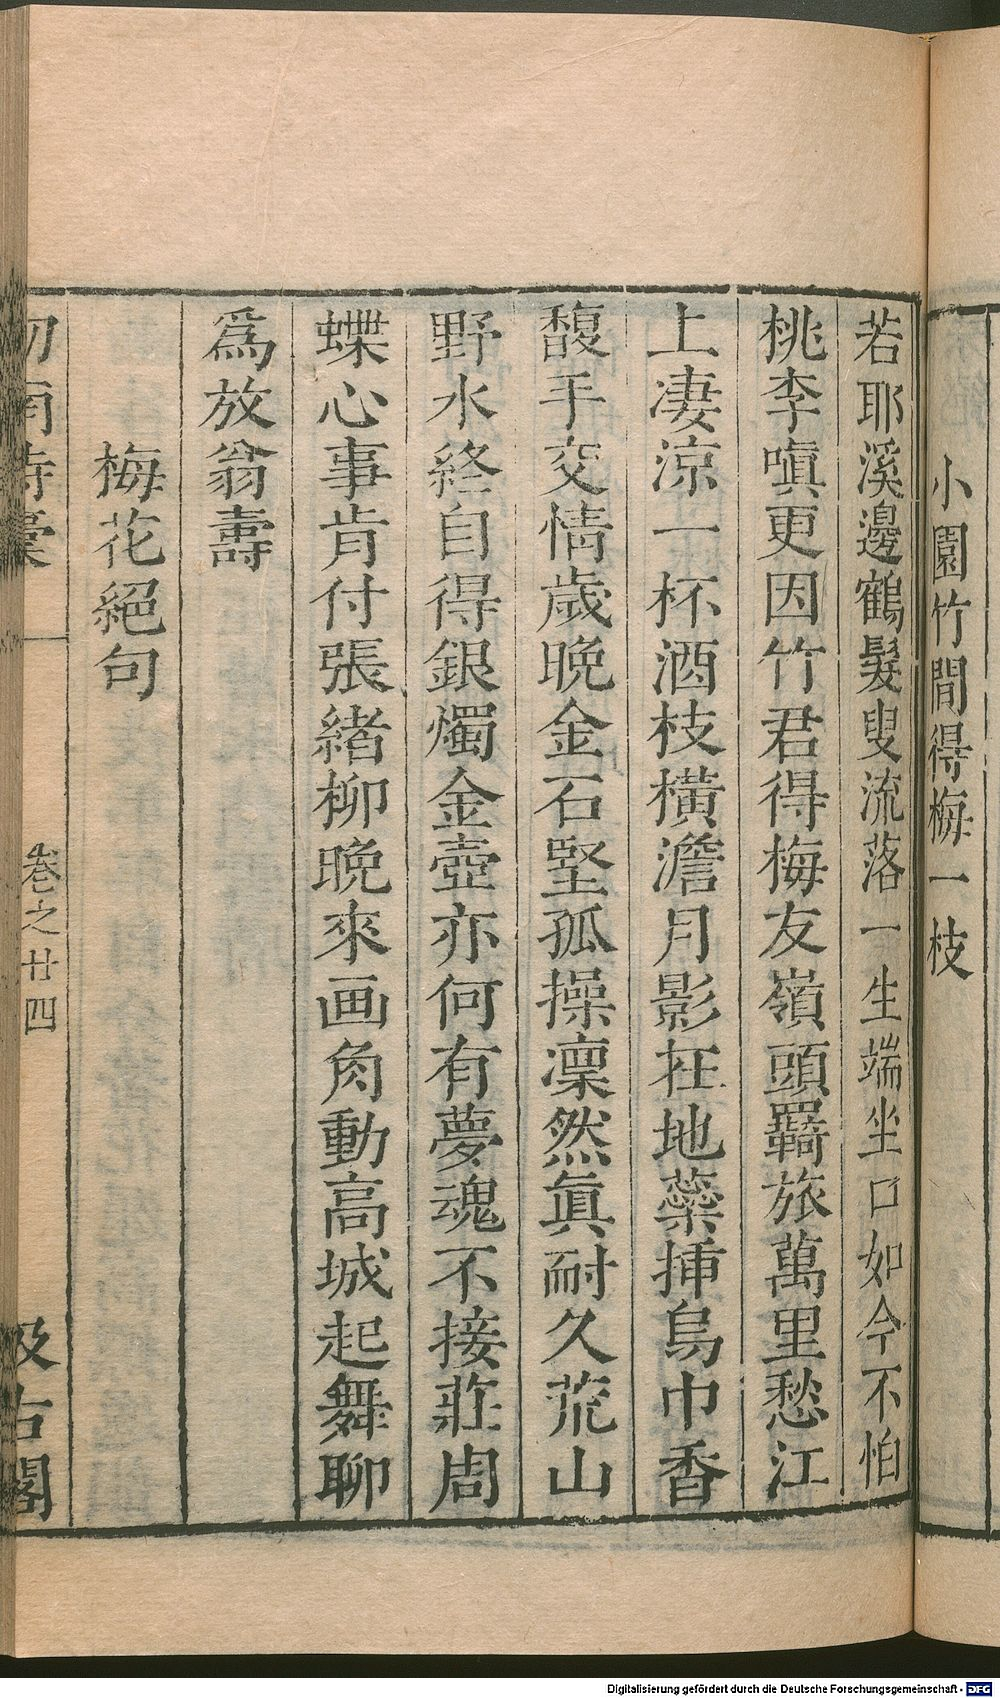 小園竹間得梅一枝
若耶溪邊鶴髮叟流落一生端坐口如今不怕
桃李嗔更因竹君得梅友嶺頭羈旅萬里愁江
上凄涼一杯酒枝橫澹月影在地蘂揷烏巾香
馥手交情歲晩金石堅孤操凜然眞耐久荒山
野水終自得銀燭金壺亦何有夢魂不接莊周
蝶心事肯付張緖柳晩來画角動高城起舞聊
爲放翁壽
梅花絕句
卷之廿四
汲古閣
Digitalisierung gefördert durch die Deutsche Forschungsgemeinschaft - DFG